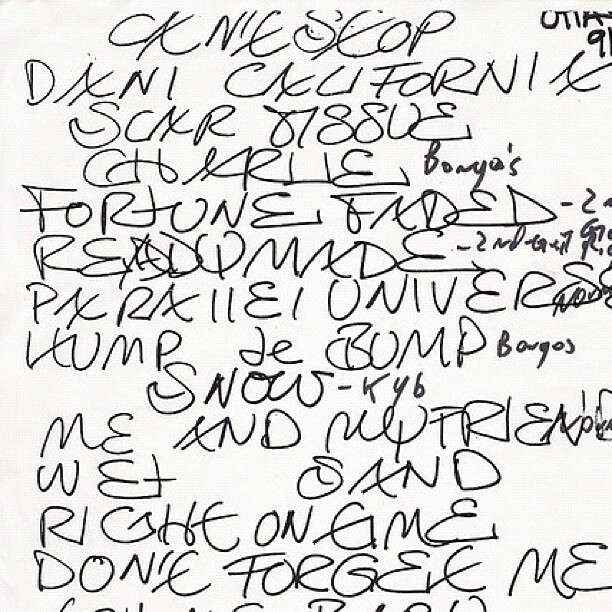 CAN'T STOP
DANI CALIFORNIA
SCAR TISSUE
CHARLIE Bongo's
FORTUNE FADED -2
READYMADE -2nd Guit
PARALLEL UNIVERSE
HUMP de BUMP Bongos
SNOW - Kyb
ME AND MY FRIEND
WET SAND
RIGHT ON TIME
DON'T FORGET ME